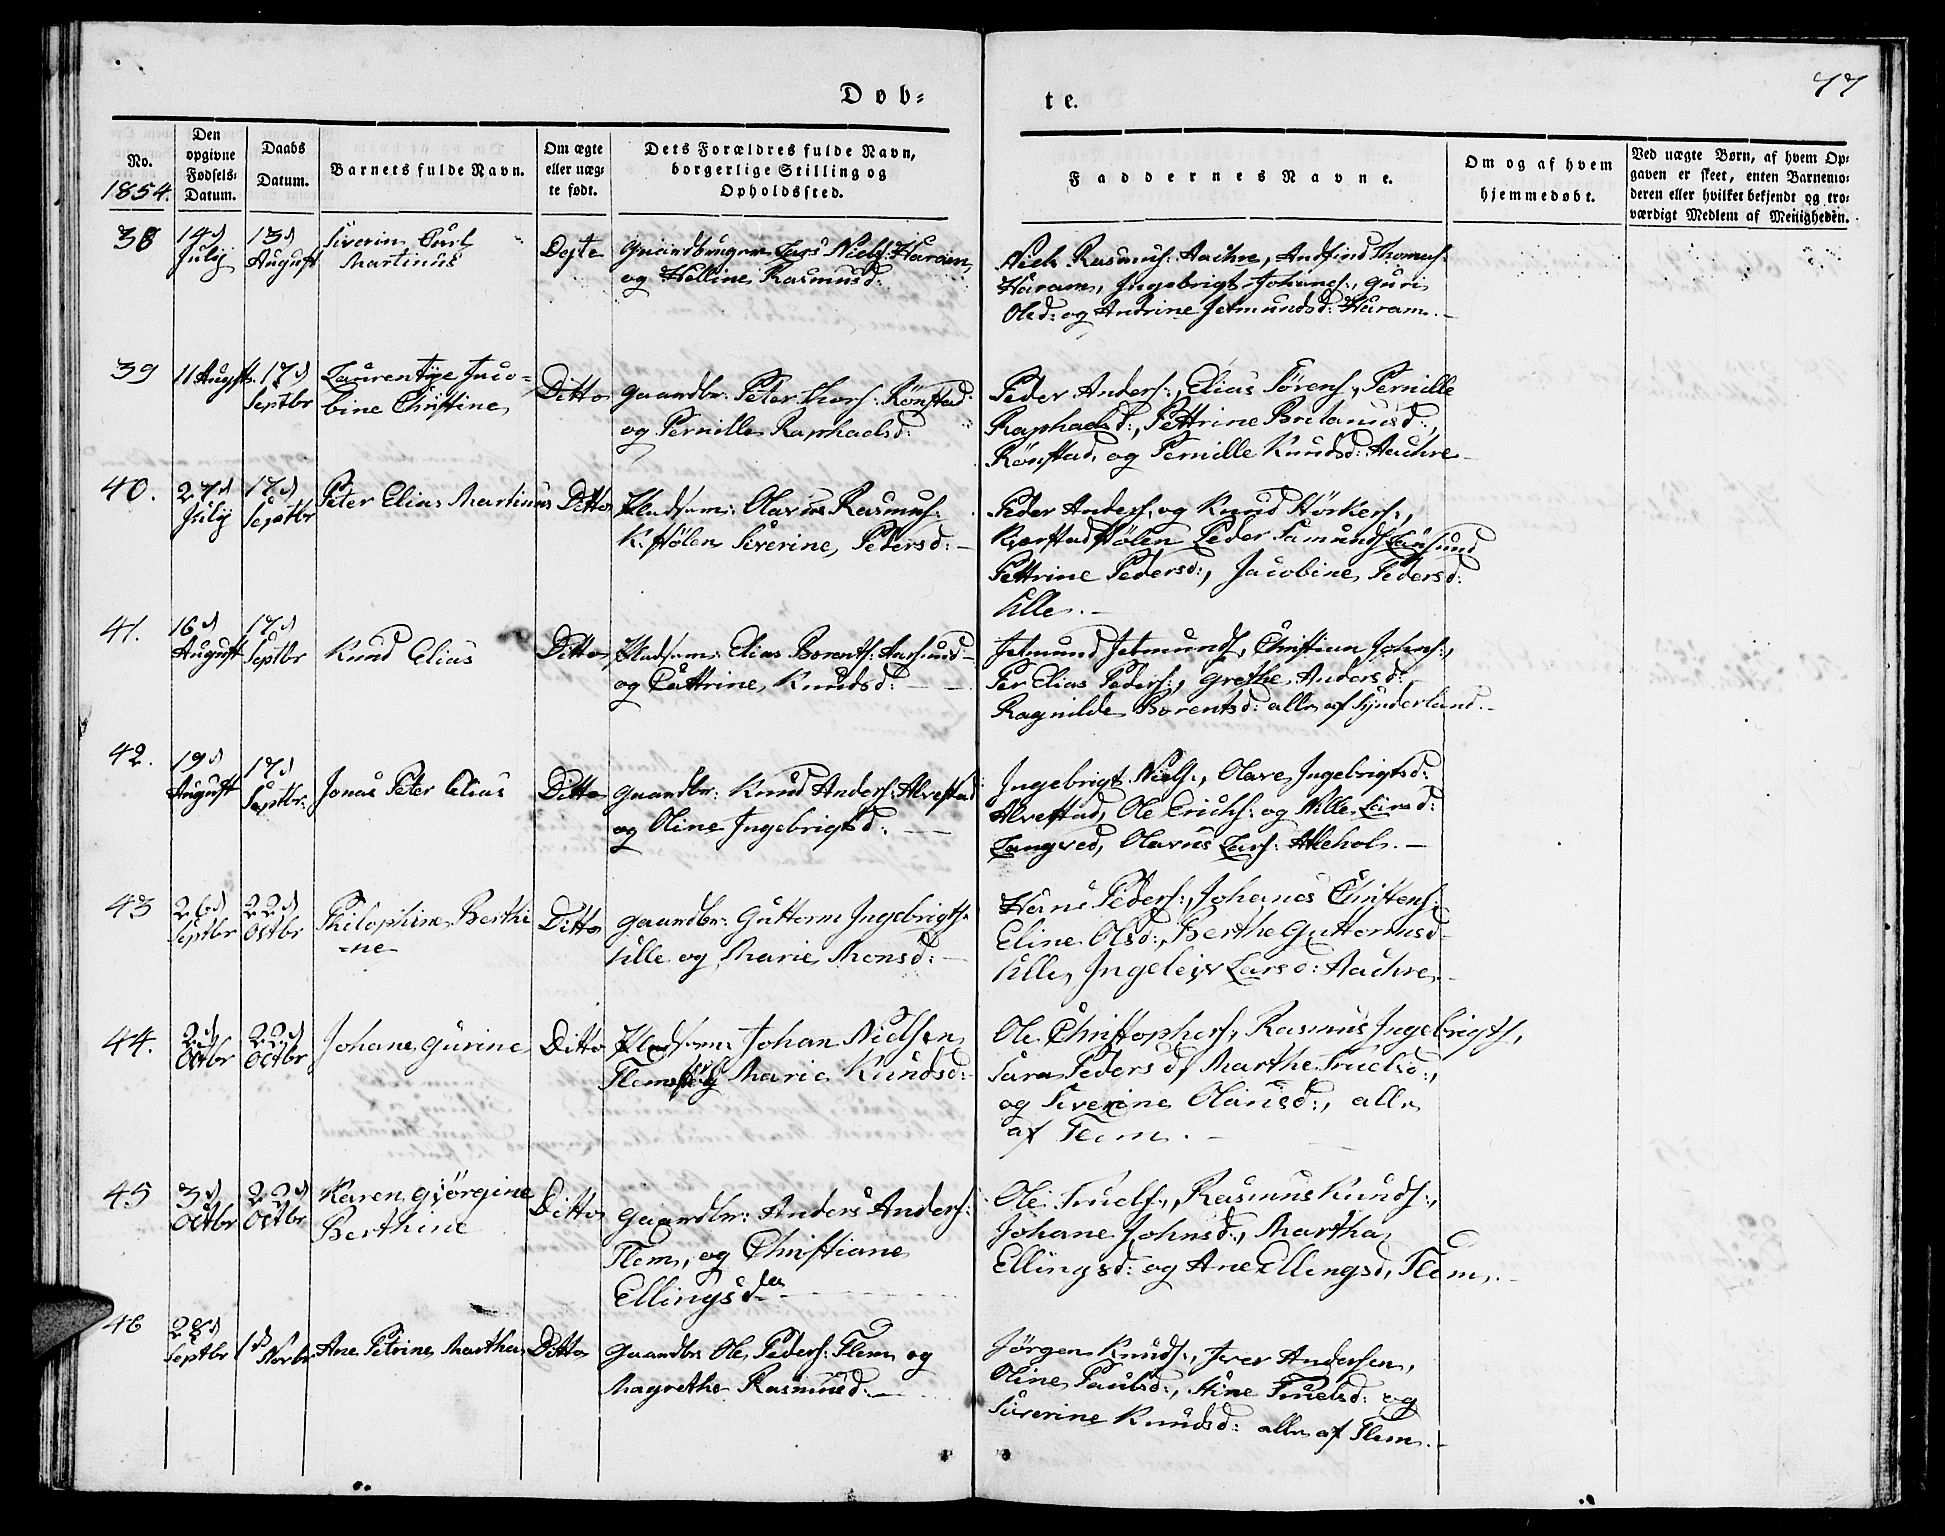 77
Døb-
te.
No.
1854.
Den
opgivne
Fødsels-
Datum.
Daabs
Datum.
Barnets fulde Navn.
Om ægte
eller uæg-
te født.
Dets Forældres fulde Navn,
borgerlige Stilling og
Opholdssted.
Faddernes Navne.
Om og af hvem
hjemmedøbt.
Ved uægte Børn, af hvem Op-
gaven er skeet, enten Barnemo-
deren eller hvilket bekjendt og tro-
værdigt Medlem af Menigheden.
38
14d
July
13d
August
Siverin Carl
Martinus
Ægte
Gaardbruger Lars Niels: Haram
og Helline Rasmusd:
Niels Rasmus: Aachre, Andfind Thomas:
Haram, Ingebrigt Johans:, Guri
Olsd: og Andrine Jetmundsd: Haram.
39
11 August
17d
Septbr
Laurentje Jaco-
bine Christine
Ditto
Gaardbr: Peter Lars: Rønstad
og Pernille Raphaelsd:
Peder Anders:, Elias Sørens:, Pernille
Raphaelsd:, Pettrine
Rønstad, og Pernille Knudsd: Aachre
40.
27d
July
17d
Septbr
Peter Elias Martinus
Ditto
Pladsm: Olavus Rasmus:
K:støLen Siverine Pedersd:
Peder Anders: og Knud
Kjerstadstølen Peder Samunds:
Pettrine Pedersd:, Jacobine Pedersd:
Ulle.
41.
16d
August
17d
Septbr
Knud Elias
Ditto
Pladsm: Elias Borents: Harsund
og Cattrine Knudsd:
Jetmund Jetmunds:, Christian Johns:,
Per Elias Peders:, Grethe Andersd:
Ragnilde Borentsd: alle af Synderland.
42.
19d
August
17d
Septbr:
Jonas Peter Elias
Ditto
Gaardbr: Knud Anders: Alvestad
og Oline Ingebrigtsd:
Ingebrigt Niels:, Olave Ingebrigtsd:
Alvestad, Ole Erichs: og Nille Larsd:
Langved, Olavus Lars: Allehol.
43
26d
Septbr
22d
Octbr
Philophine Berthi
-ne
Ditto
Gaardbr: Guttorm Ingebrigts:
Ulle og Marie Monsd:
Hans Peders:, Johanes Christens:
Eline Olsd:, Berthe Guttormsd
Ulle, Ingeleiv Larsd: Aachre
44.
2d
Octbr
22d
Octbr
Johane Gurine
Ditto
Pladsm: Johan Nielsen
Flem og Marie Knudsd:
Ole Christophers:, Rasmus Ingebrigts:,
Sara Pedersd, Marthe Truelsd:,
og Siverine Olausd:, alle
af Flem.
45
3d
Octbr
22d
Octbr
Karen Gjørgine
Berthine
Ditto
Gaardbr: Anders Anders:
Flem, og Christiane
Ellingsd
Ole Truels:, Rasmus Knuds:,
Johane Johnsd:, Martha
Ellingsd: og Ane Ellingsd, Flem.
46
28d
Septbr
1d Novbr
Ane Petrine Martha
Ditto
Gaardbr Ole Peders: Flem og
Magrethe Rasmusd:
Jørgen Knuds:, Iver Andersen,
Oline Paulsd:, Stine Truelsd: og
Siverine Knudsd: alle af Flem.